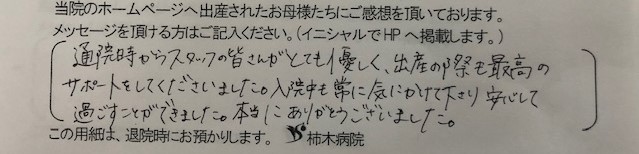 当院のホームページへ出産されたお母様たちにご感想を頂いております。
メッセージを頂ける方はご記入ください。(イニシャルでHPへ掲載します。)
通院時からスタッフの皆さんがとても優しく、出産の際も最高の
サポートをしてくださいました。入院中も常に気にかけて下さり安心して
過ごすことができました。本当にありがとうございました。
この用紙は、退院時にお預かりします。 柿木病院